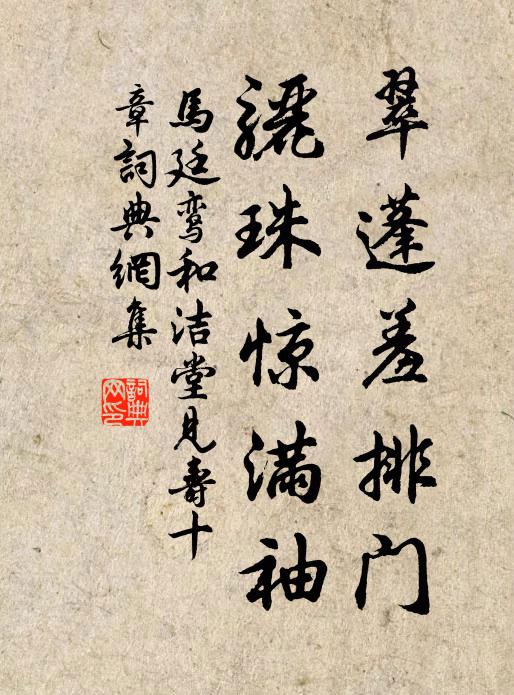 翠蓬羞排门
骊珠惊满袖
馬廷鸾和洁堂見壽十
章詞典網集
詞典网印